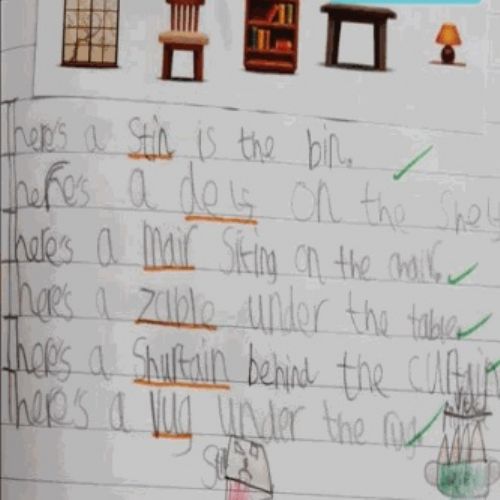 There's a Stin is the bin.
There's a dels on the Shel
There's a Mair Siting on the chair.
There's a Zable under the table.
There's a Shurtain behind the curtain
There's a Vug under the rug